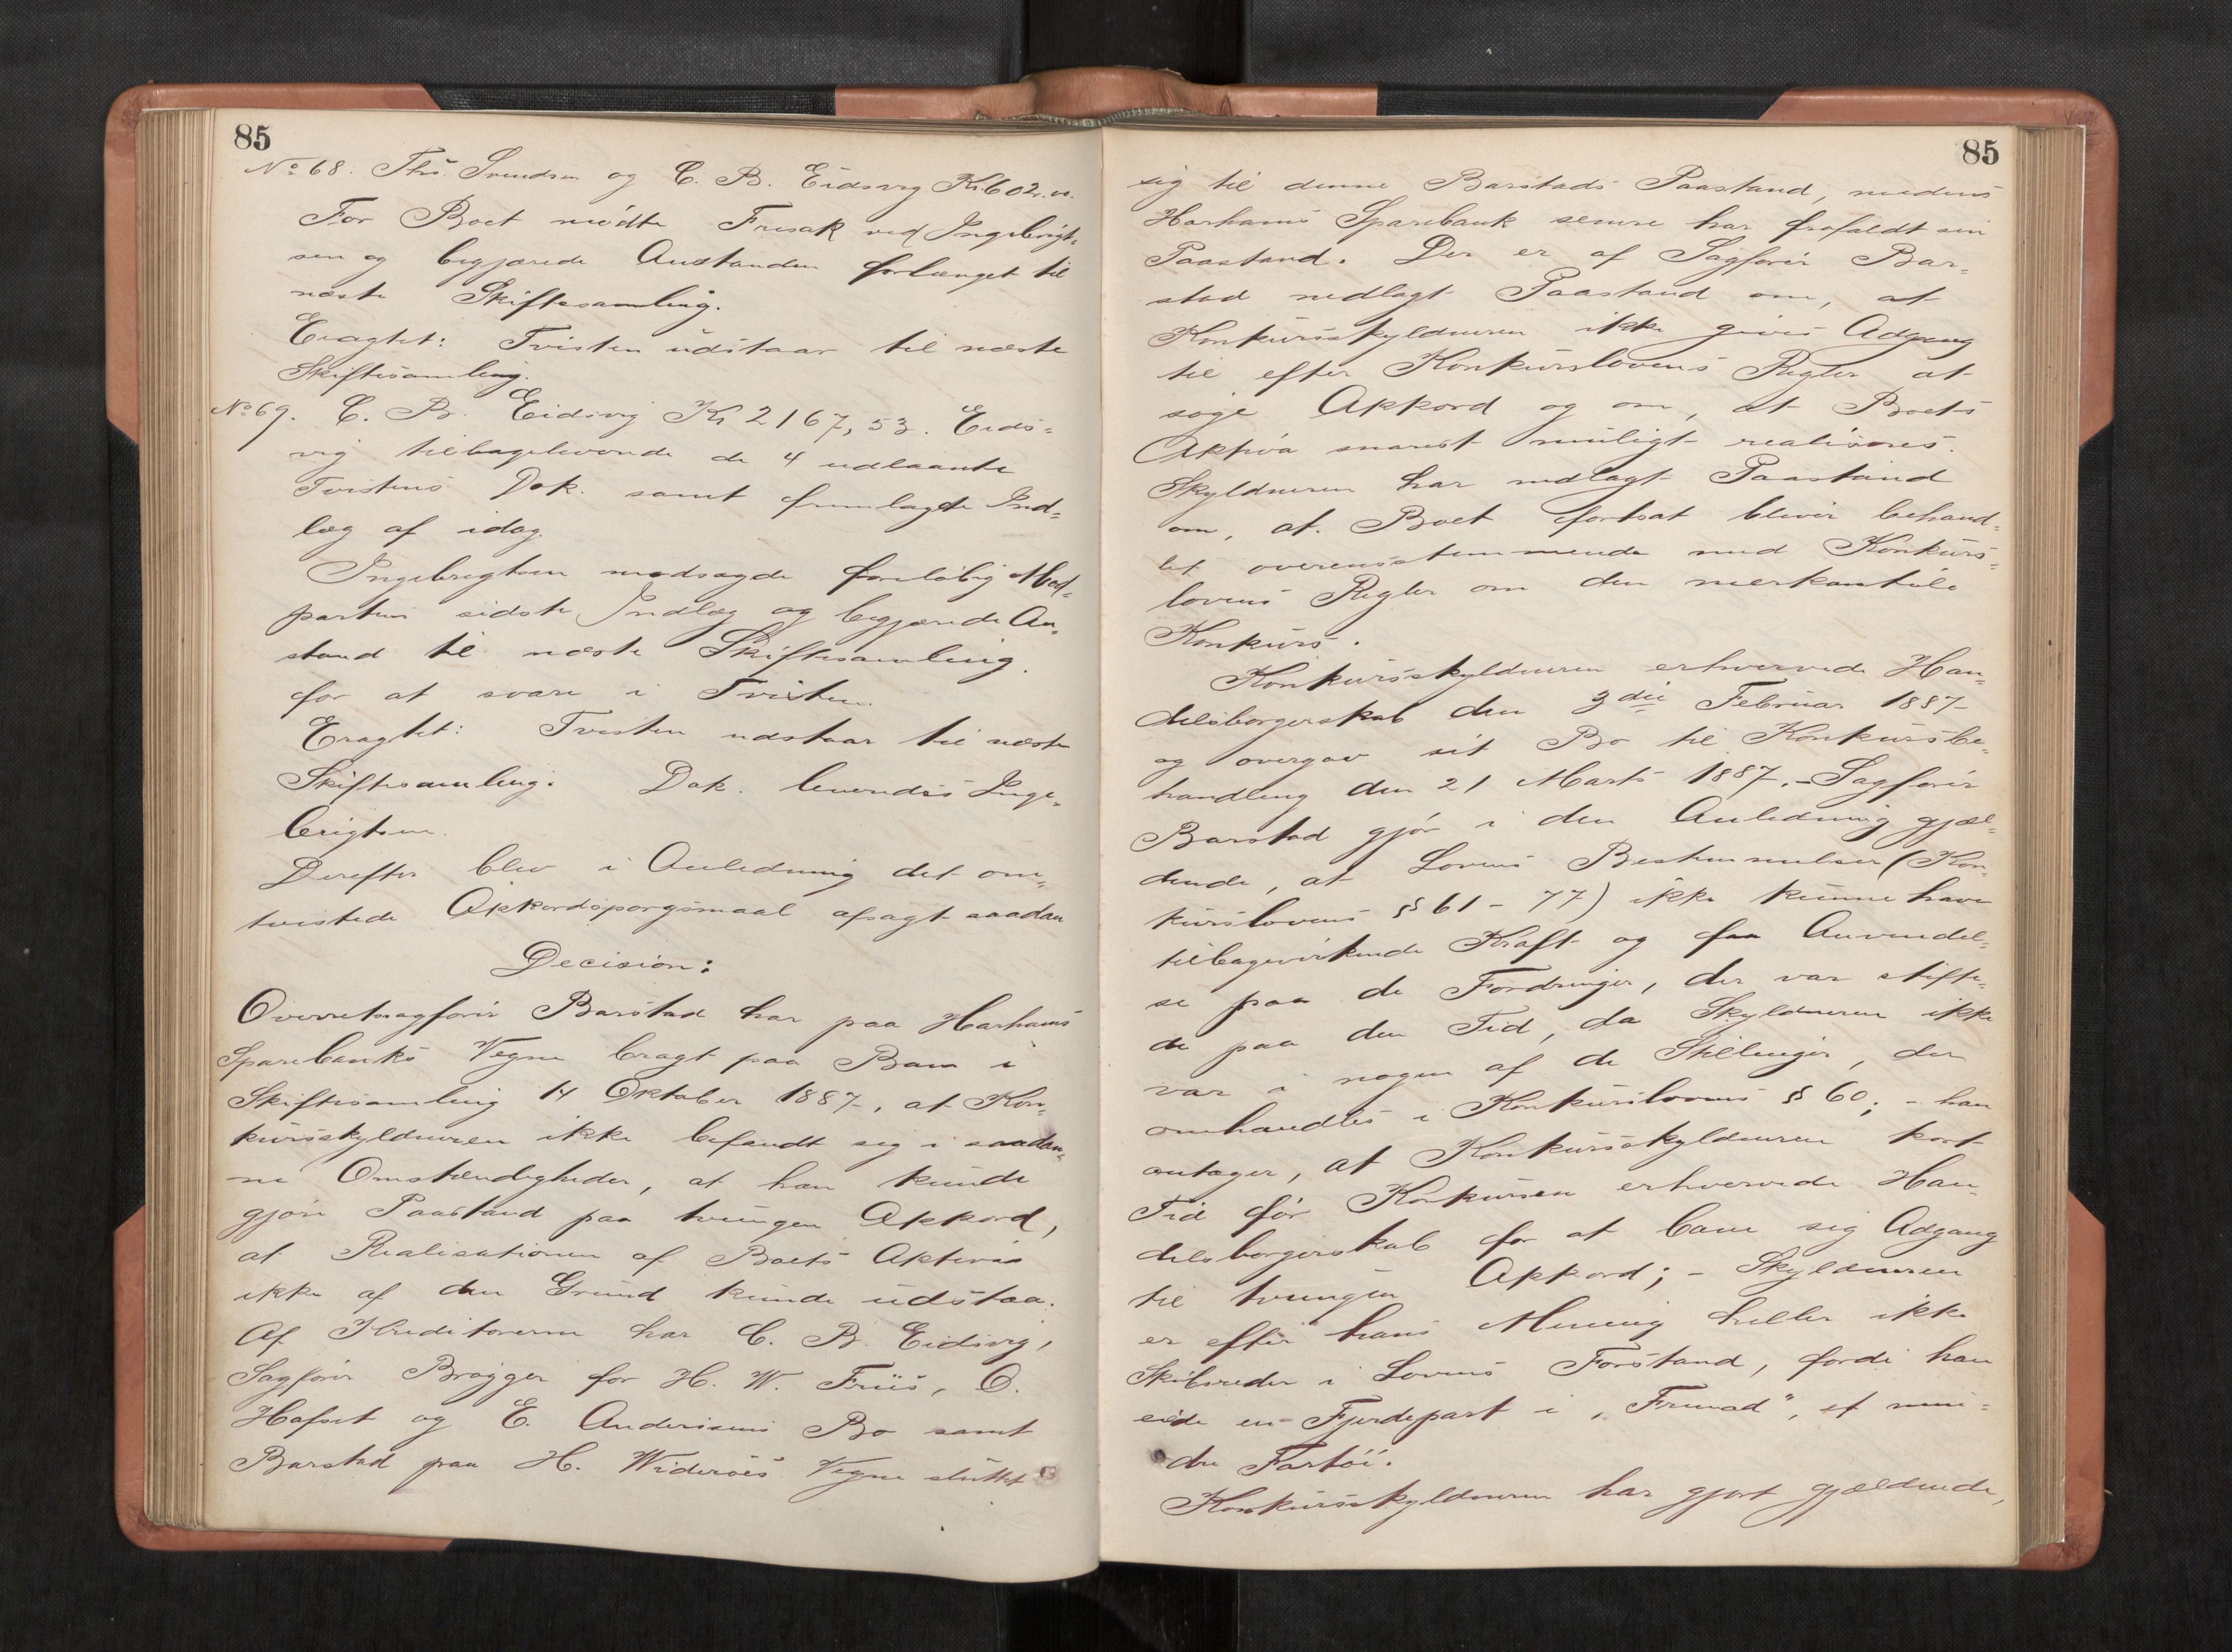 85
No 68. Ths. Svendsen og C. B. Eidsvig Kr 602.
For Boet mødte Frisak ved Ingebrigt-
sen og begjærede Anstanden forlænget til
næste Skiftesamling.
Eragtet: Tvisten udstaar til næste
Skiftesamling.
No 69. C. B. Eidsvig Kr 2167,53. Eids-
vig tilbageleverede de 4 udlaante
Tvistens Dok. samt fremlagde Ind-
læg af idag.
Ingebrigtsen modsagde foreløbig Mod-
parten sidste Indlæg og begjærede An-
stand til næste Skiftesamling
for at svare i Tvisten.
Eragtet: Tvisten udstaar til næste
Skiftesamling. Dok. leveredes Inge-
brigtsen.
Derefter blev i Anledning det om-
tvistede Akkordspørgsmaal afsagt saadan
Decision:
Overretssagfører Barstad har paa Harhams
Sparebanks Vegne bragt paa Bane i
Skiftesamling 14 Oktober 1887, at Kon-
kursskyldneren ikke befandt sig i saadan-
ne Omstændigheder, at han kunde
gjøre Paastand paa tvungen Akkord,
at Realisationen af Boets Aktiva
ikke af den Grund kunde udstaa.
Af Kreditorerne har C. B. Eidsvig,
Sagfører Brøgger for H. W. Friis, O.
Hafset og E. Andersens Bo samt
Barstad paa H. Widerøes Vegne sluttet
85
sig til denne Barstads Paastand, medens
Harhams Sparebank senere har frafaldt sin
Paastand. Der er af Sagfører Bar-
stad nedlagt Paastand om, at
Konkursskyldneren ikke gives Adgang
til efter Konkurslovens Regler at
søge Akkord og om, at Boets
Aktiva snarest muligt realiseres.
Skyldneren har nedlagt Paastand
om, at Boet fortsat bliver behand-
let overensstemmende med Konkurs-
lovens Regler om den merkantile
Konkurs.
Konkursskyldneren erhvervede Han-
delsborgerskab den 3die Februar 1887
og overgav sit Bo til Konkursbe-
handling den 21 Marts 1887. - Sagfører
Barstad gjør i den Anledning gjæl-
dende, at Lovens Bestemmelser (Kon-
kurslovens §§ 61 - 77) ikke kunne have
tilbagevirkende Kraft og faa Anvendel-
se paa de Fordringer, der var stifte-
de paa den Tid, da Skyldneren ikke
var i nogen af de Stillinger, der
omhandles i Konkurslovens § 60; - han
antager, at Konkursskyldneren kort
Tid før Konkursen erhvervede Han-
delsborgerskab for at bane sig Adgang
til tvungen Akkord; - Skyldneren
er efter hans Mening heller ikke
Skibsreder i Lovens Forstand, fordi han
eide en Fjerdepart i "Fremad", et min-
dre Fartøi.
Konkursskyldneren har gjort gjældende,